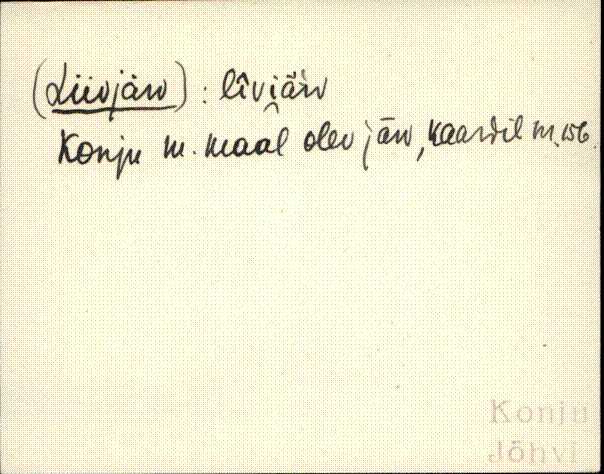 (Liivjärv) : lîvi̯äŕv
Konju m. maal olev järv, kaardil m. 156.
Konju
Jõhvi